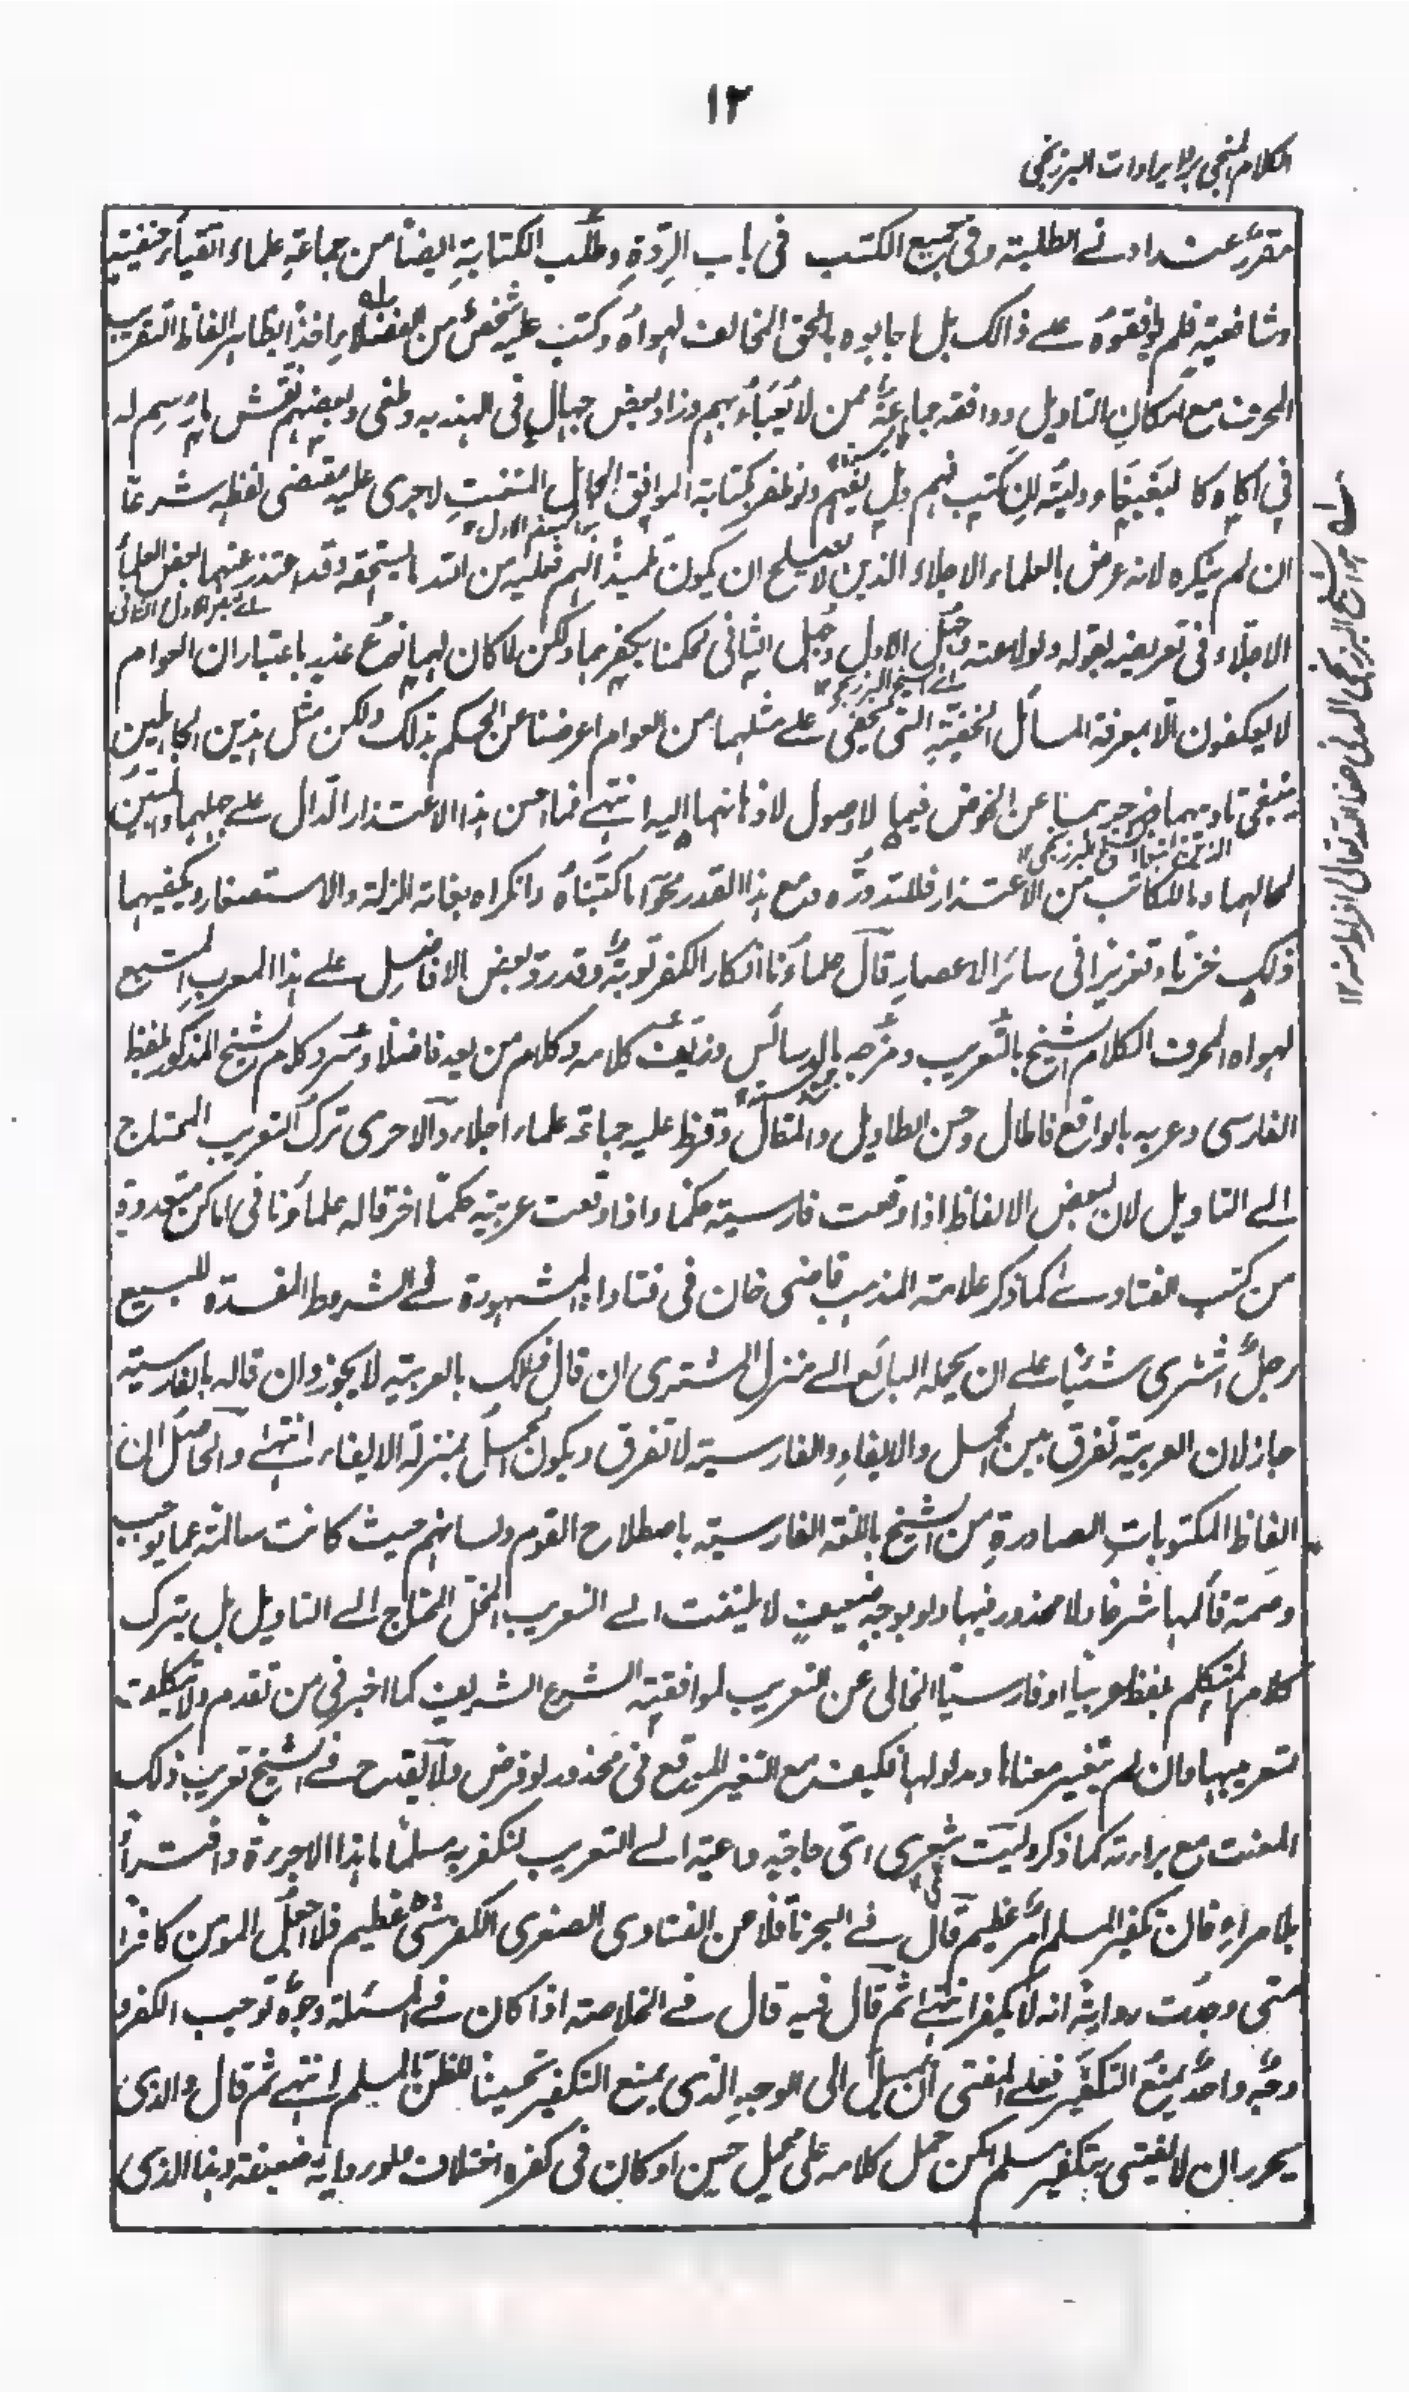 ١٢
الكلام المنجي برد ايرادات البرزنجي
مقرر عند اد نے الطلبة وفي جميع الكتب في باب الردة وطلب الكتابة ايضا من جماعة علماء اتقياء حنفية
وشافعية فلم يوافقوه علے ذالك بل اجابوه بالحق المخالف لهواه وكتب عليه شخص من الفضلاء اخذا بظاهر الفاظ التعريب
المحرف مع امكان التاويل ووافقه جماعة ممن لا يعبأ بهم وزاد بعض جهال في الهند به وطغى وبعضهم نقش ما رسم له
في لو ظفر بكتابة الموافق الجاهل المتعنت لاجرى عليه مقتضى لفظه شرعا
ان لم ينكره لانه عرض بالعلماء الاجلاء الذين لا يصلح ان يكون تلميذا لهم فعليه من الله ما يستحقه وقد اعتذر عنهما بعض العلماء
الاجلاء في تعريضه بقوله ولولا عته وجهل الاول وجهل الثاني لحكمنا بكفرهما ولكن لما كان لهما نوع عذر باعتبار ان العوام
لا يكلفون الا بمعرفة المسائل الخفية التي تخفى علے مثلهما من العوام اعرضنا عن الحكم بذلك ولكن مثل هذين الجاهلين
ينبغي تاديبهما وزجرهما عن الخوض فيما لا وصول لاذهانهما اليه انتهے فما احسن هذا الاعتذار الدال علے جهلهما والمبين
لحالهما وما للكاتب من الاعتذار فلله دره ومع هذا القدر محوا ما كتبناه وانكراه بغاية الذلة والاستصغار ويكفيهما
ذلك خزيا وتعزيرا في سائر الاعصار قال علماؤنا انكار الكفر توبة وقد رد بعض الافاضل علے هذا المعرب المتبع
لهواه المحرف الكلام الشيخ بالتعريب ومزجه بالوسائس وزيف كلامه وكلام من يعد فاضلا وسرد كلام الشيخ المذكور بلفظ
الفارسى وعربه بالواقع فاطال وحسن الطاويل والمقال وقرظ عليه جماعة علماء اجلاء والاحرى ترك التعريب المحتاج
الے التاويل لان لبعض الالفاظ اذا وقعت فارسية حكما واذا وقعت عربية حكما اخر قاله علماؤنا في اماكن متعددة
من كتب الفتاوے كما ذكر علامة المذهب قاضي خان في فتاواه المشهورة فے الشروط المفسدة للبيع
رجل اشترى شيئا علے ان يحمله البائع الے منزل المشترى ان قال ذلك بالعربية لا يجوز وان قاله بالفارسية
جاز لان العربية تفرق بين الحمل والايفاء والفارسية لا تفرق ويكون الحمل بمنزلة الايفاء انتهے والحاصل ان
الفاظ المكتوبات الصادرة من الشيخ باللغة الفارسية باصطلاح القوم ولسانهم حيث كانت سالمة عما يوجب
وصمة قائلها شرعا ولا محذور فيها ولو بوجه ضعيف لا يلتفت الے التعريب المخل المحتاج الے التاويل بل يترك
كلام المتكلم بلفظه عربيا او فارسيا الخالى عن التعريب لموافقة الشرع الشريف كما اخبرني من تقدم ولا يتكلف
لتعريبها وان لم يتغير معناها ومدلولها فكيف مع التغير الموقع في محذور لو فرض ولا يقدح فے الشيخ تعريب ذلك
المعنت مع براءته كما ذكر وليت شعرى اى حاجة داعية الے التعريب لنكفر به مسلما ما هذا الا جرءة وافتراء
بلا مراء فان تكفير المسلم امر عظيم قال فے البحر ناقلا من الفتاوى الصغرى الكفر شئ عظيم فلا اجعل المومن كافرا
متى وجدت رواية انه لا يكفر انتهے ثم قال فيه قال فے الخلاصة اذا كان فے المسئلة وجوه توجب الكفر و
وجه واحد يمنع التكفير فعلے المفتى ان يميل الى الوجه الذى يمنع التكفير تحسينا للظن بالمسلم انتهے ثم قال والذى
يحرر ان لا يفتى بتكفير مسلم امكن حمل كلامه على محمل حسن او كان في كفره اختلاف ولو رواية ضعيفة وهذا الذى